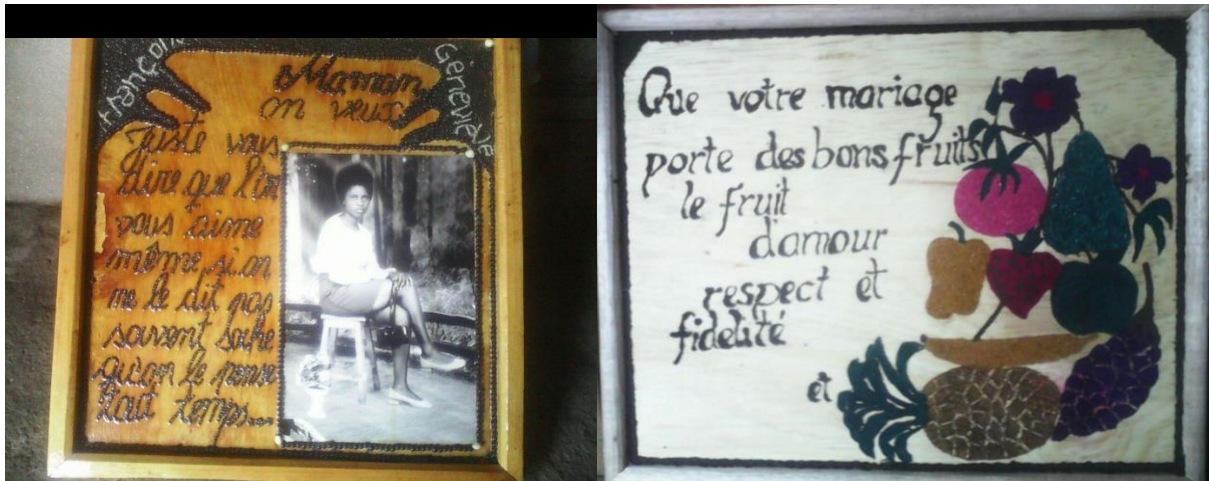 Françoise
Geneviève
Maman
on veux
Juste vous
dire que l'on
vous aime
même si on
ne le dit pas
souvent sache
qu'on le pense
tout temps...
Que votre mariage
porte des bons fruits
le fruit
d'amour
respect et
fidelité
et